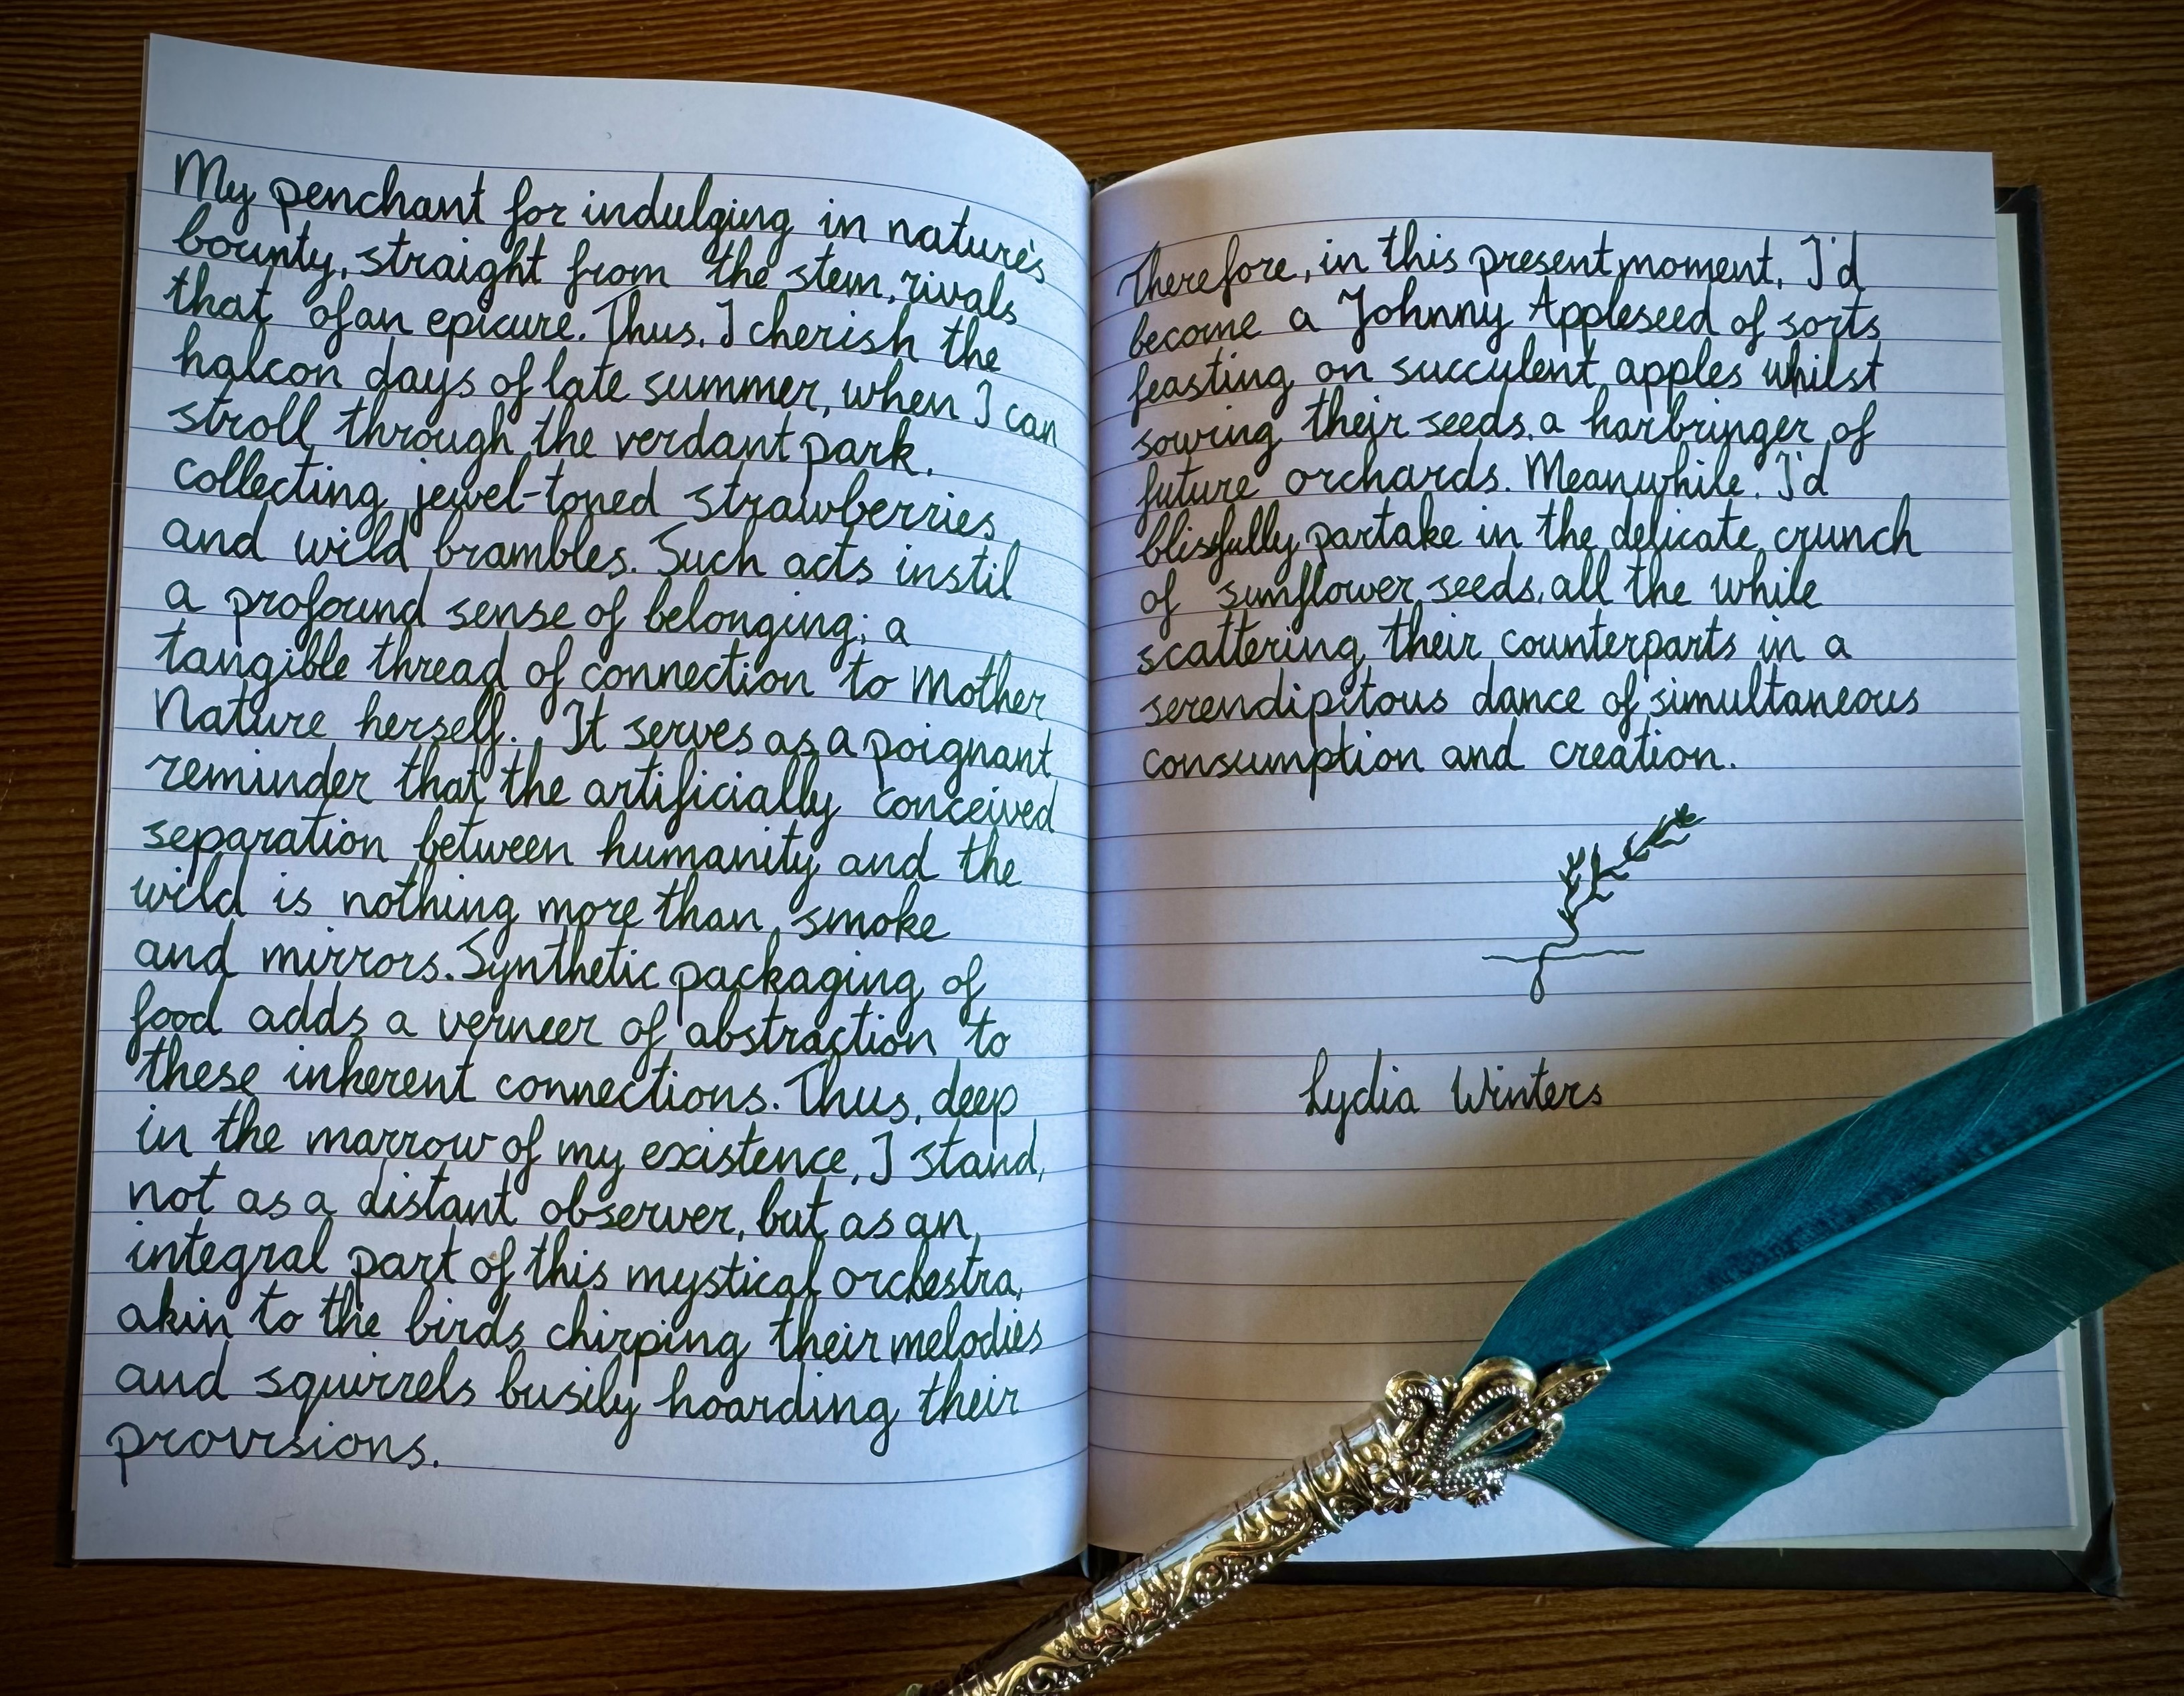 My penchant for indulging in nature's
bounty, straight from the stem, rivals
that of an epicure. Thus, I cherish the
halcon days of late summer, when I can
stroll through the verdant park,
collecting jewel-toned strawberries
and wild brambles. Such acts instil
a profound sense of belonging; a
tangible thread of connection to Mother
Nature herself. It serves as a poignant
reminder that the artificially conceived
separation between humanity and the
wild is nothing more than smoke
and mirrors. Synthetic packaging of
food adds a verneer of abstraction to
these inherent connections. Thus, deep
in the marrow of my existence, I stand,
not as a distant observer, but as an
integral part of this mystical orchestra,
akin to the birds chirping their melodies
and squirrels busily hoarding their
provisions.
Therefore, in this present moment, I'd
become a Johnny Appleseed of sorts
feasting on succulent apples whilst
sowing their seeds, a harbringer of
future orchards. Meanwhile, I'd
blissfully partake in the delicate crunch
of sunflower seeds, all the while
scattering their counterparts in a
serendipitous dance of simultaneous
consumption and creation.
Lydia Winters